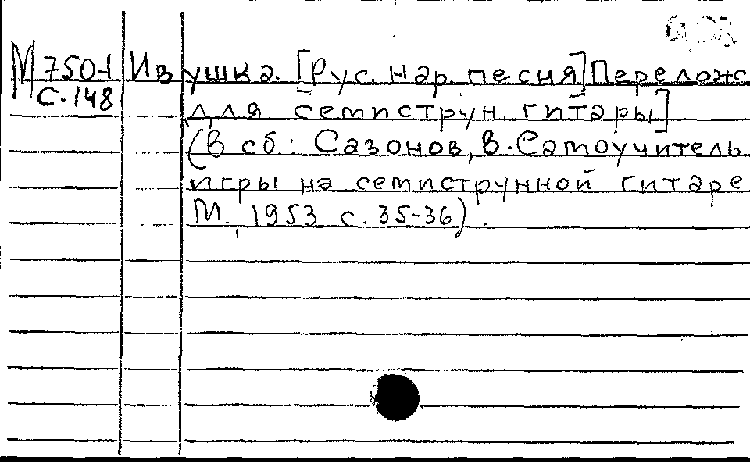 М 750-1 Ивушка. [Рус. нар. песня] Перелож
с. 148 для семиструн. гитары]
(В сб: Сазонов, В. Самоучитель
игры на семиструнной гитаре
М., 1953 с. 35-36).